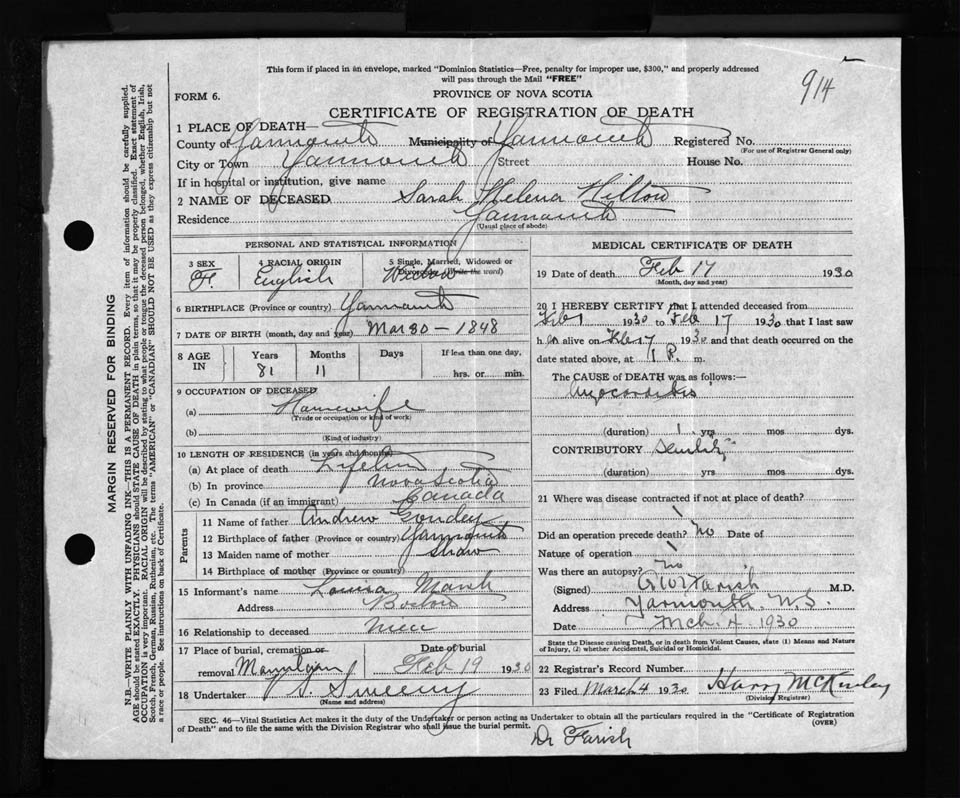 914
This form if placed in an envelope, marked "Dominion Statistics—Free, penalty for improper use, $300," and properly addressed
will pass through the Mail "FREE"
FORM 6.
PROVINCE OF NOVA SCOTIA
CERTIFICATE OF REGISTRATION OF DEATH
1 PLACE OF DEATH—
County of Yarmouth Municipality of Yarmouth Registered No.
(For use of Registrar General only)
City or Town Yarmouth Street House No.
If in hospital or institution, give name
2 NAME OF DECEASED Sarah Helena Hilton
Residence Yarmouth
(Usual place of abode)
PERSONAL AND STATISTICAL INFORMATION
3 SEX 4 RACIAL ORIGIN 5 Single, Married, Widowed or
Divorced (Write the word)
F. English Widow
6 BIRTHPLACE (Province or country) Yarmouth
7 DATE OF BIRTH (month, day and year) Mar 30 - 1848
8 AGE IN Years Months Days If less than one day,
81 11 hrs. or min.
9 OCCUPATION OF DECEASED
(a) Housewife
(Trade or occupation or kind of work)
(b)
(Kind of industry)
10 LENGTH OF RESIDENCE (in years and months)
(a) At place of death Lifetime
(b) In province Nova Scotia
(c) In Canada (if an immigrant) Canada
Parents
11 Name of father Andrew Goudey
12 Birthplace of father (Province or country) Yarmouth
13 Maiden name of mother Shaw
14 Birthplace of mother (Province or country)
15 Informant's name Louisa Marsh
Address Boston
16 Relationship to deceased niece
17 Place of burial, cremation or Date of burial
removal Feb 19 1930
18 Undertaker Sweeny
(Name and address)
MEDICAL CERTIFICATE OF DEATH
19 Date of death Feb 17 1930
(Month, day and year)
20 I HEREBY CERTIFY that I attended deceased from
Feb 1 1930 to Feb 17 1930 that I last saw
h er alive on Feb 17 1930 and that death occurred on the
date stated above, at 1 P. m.
The CAUSE OF DEATH was as follows:—
Myocarditis
(duration) 1 yrs mos dys.
CONTRIBUTORY Senility
(duration) yrs mos dys.
21 Where was disease contracted if not at place of death?
Did an operation precede death? No Date of
Nature of operation
Was there an autopsy? no
(Signed) Farish M.D.
Address Yarmouth, N.S.
Date Mch. 4. 1930
State the Disease causing Death, or in death from Violent Causes, state (1) Means and Nature
of Injury, (2) whether Accidental, Suicidal or Homicidal.
22 Registrar's Record Number
23 Filed March 4 1930 Harry McKinley
(Division Registrar)
SEC. 46—Vital Statistics Act makes it the duty of the Undertaker or person acting as Undertaker to obtain all the particulars required in the "Certificate of Registration
of Death" and to file the same with the Division Registrar who shall issue the burial permit. (OVER)
Dr Farish
MARGIN RESERVED FOR BINDING
N.B.—WRITE PLAINLY WITH UNFADING INK—THIS IS A PERMANENT RECORD. Every item of information should be carefully supplied.
AGE should be stated EXACTLY. PHYSICIANS should STATE CAUSE OF DEATH in plain terms, so that it may be properly classified. Exact statement of
OCCUPATION is very important. RACIAL ORIGIN will be described by stating to what people or tongue the deceased person belonged, whether English, Irish,
Scotch, French, German, Russian, Ruthenian, etc. The terms "AMERICAN" or "CANADIAN" SHOULD NOT BE USED as they express citizenship but not
a race or people. See instructions on back of Certificate.